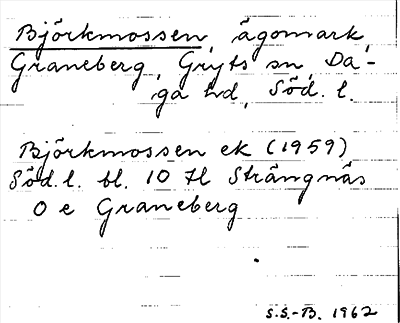 Björkmossen, ägomark,
Graneberg, Gryts sn, Da-
ga hd, Söd. l.
Björkmossen ek (1959)
Söd. l. bl. 10 H Strängnäs
O e Graneberg
S.S.-B. 1962